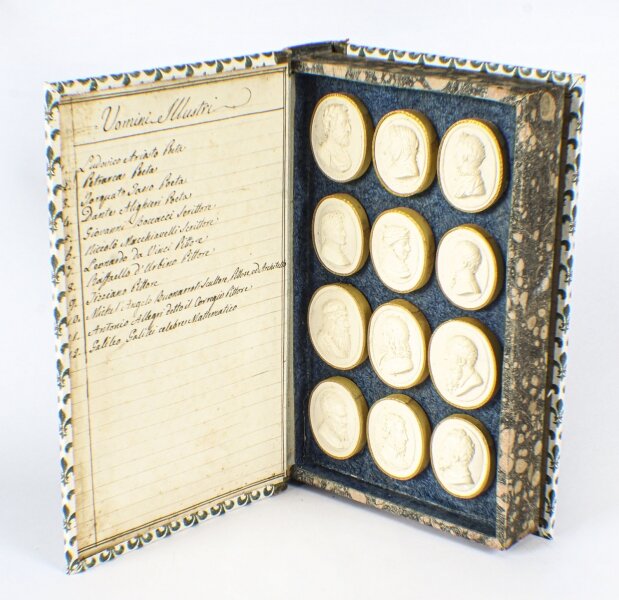 Uomini Illustri
1. Ludovico Ariosto Poeta
2. Petrarca Poeta
3. Torquato Tasso Poeta
4. Dante Alighieri Poeta
5. Giovanni Boccacci Scrittore
6. Niccolò Macchiavelli Scrittore
7. Leonardo da Vinci Pittore
8. Raffaello d'Urbino Pittore
9. Tiziano Pittore
10. Michel'Angelo Buonarroti Scultore, Pittore, ed Architetto
11. Antonio Allegri detto il Corregio Pittore
12. Galileo Galilei celebre Mathematico